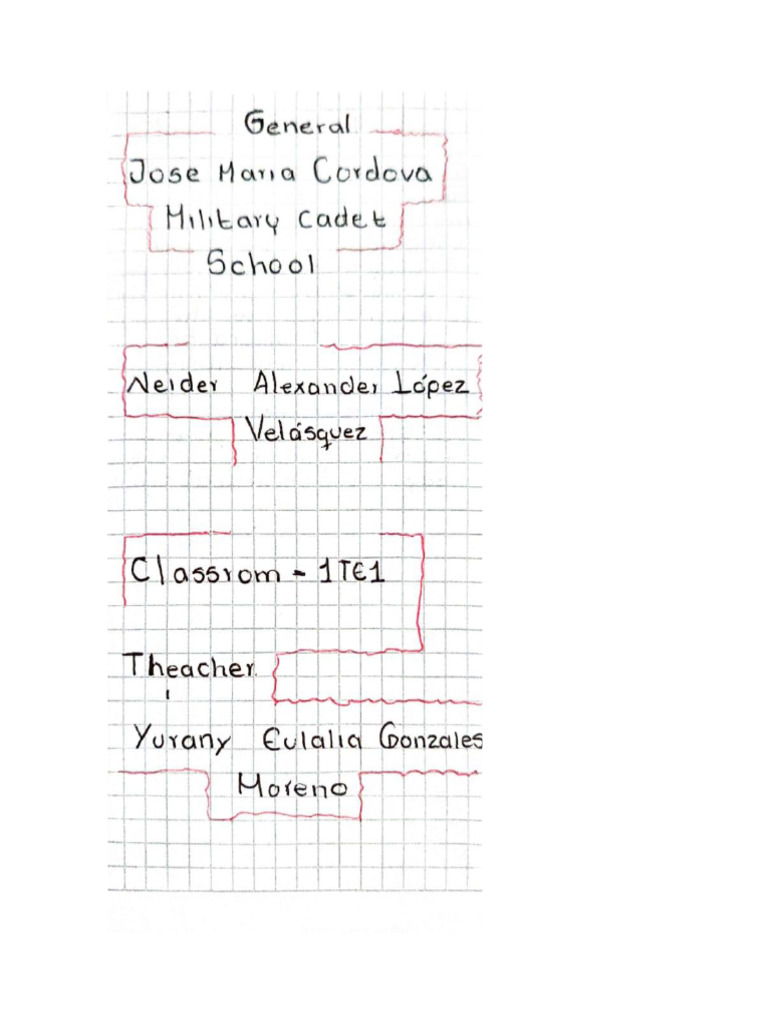 General
Jose Maria Cordova
Military Cadet
School
Neider Alexander López
Velásquez
Classrom - 1TE1
Theacher
Yurany Eulalia Gonzales
Moreno